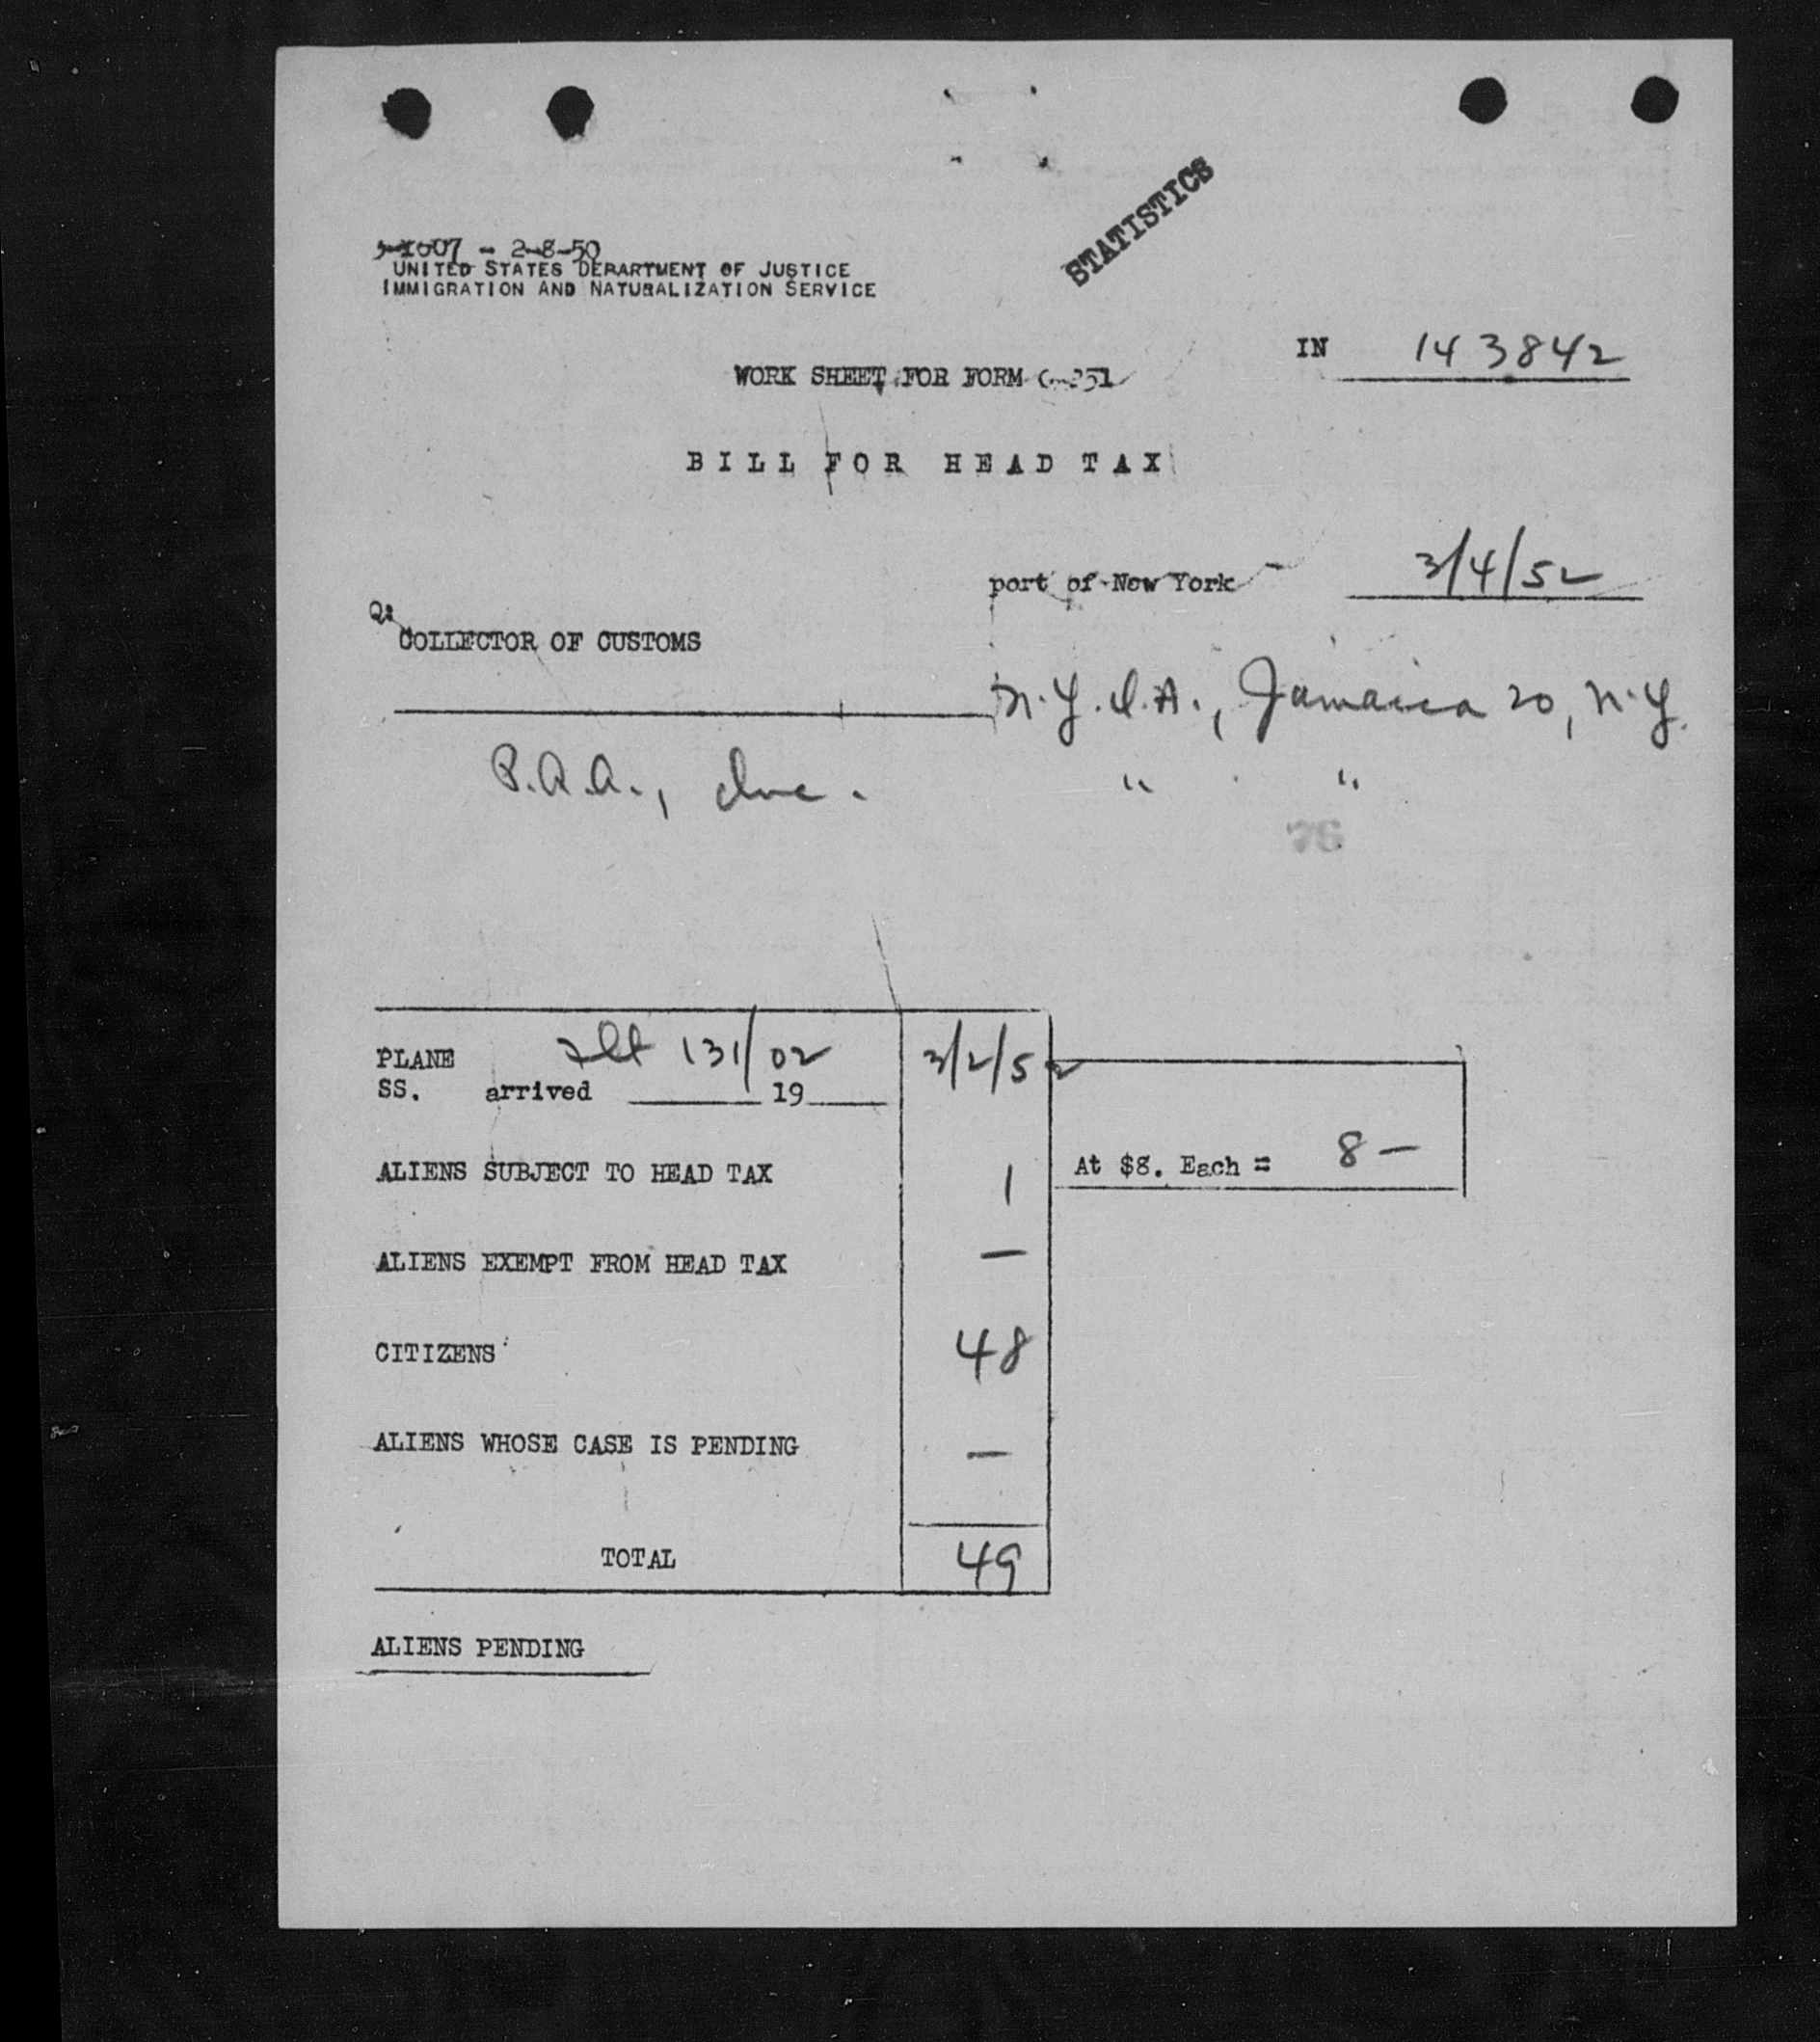 STATISTICS
1607 - 2-8-50
UNITED STATES DEPARTMENT OF JUSTICE
IMMIGRATION AND NATURALIZATION SERVICE
IN 143842
WORK SHEET FOR FORM G-251
BILL FOR HEAD TAX
port of New York 3/4/52
COLLECTOR OF CUSTOMS
N.Y.I.A., Jamaica 20, N.Y.
P.A.A., Inc. " "
76
PLANE flt 131/02 3/2/52
SS. arrived 19
ALIENS SUBJECT TO HEAD TAX 1 At $8. Each = 8 —
ALIENS EXEMPT FROM HEAD TAX —
CITIZENS 48
ALIENS WHOSE CASE IS PENDING —
TOTAL 49
ALIENS PENDING